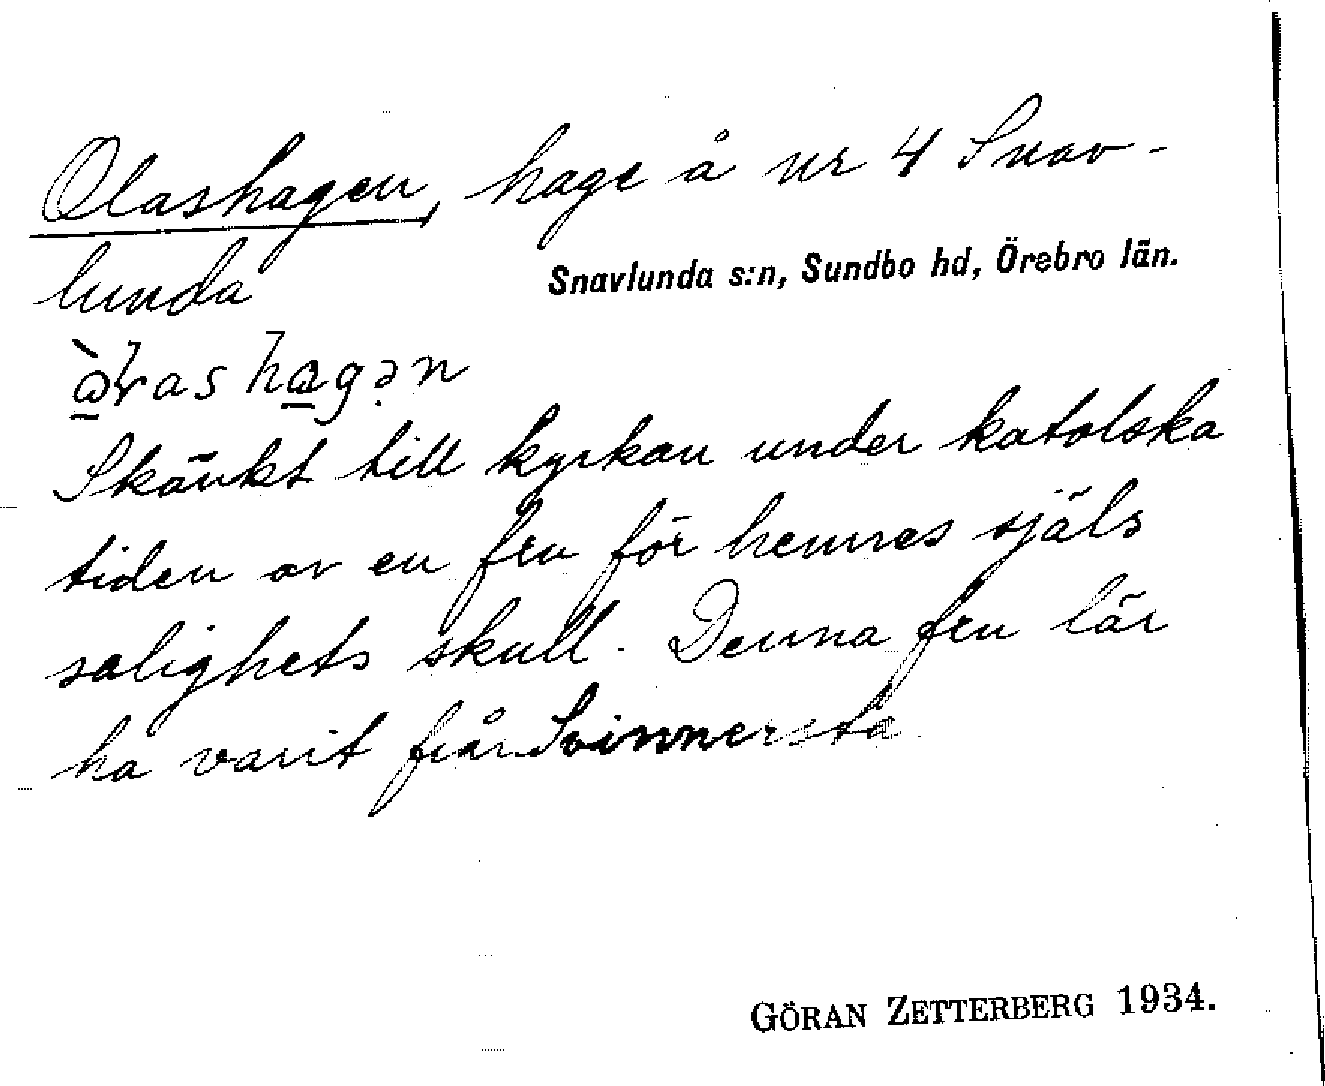 Olashagen, hage å nr 4 Snav-
lunda
Snavlunda s:n, Sundbo hd, Örebro län.
Skänkt till kyrkan under katolska
tiden av en fru för hennes själs
salighets skull. Denna fru lär
ha varit från Svinnersta
GÖRAN ZETTERBERG 1934.